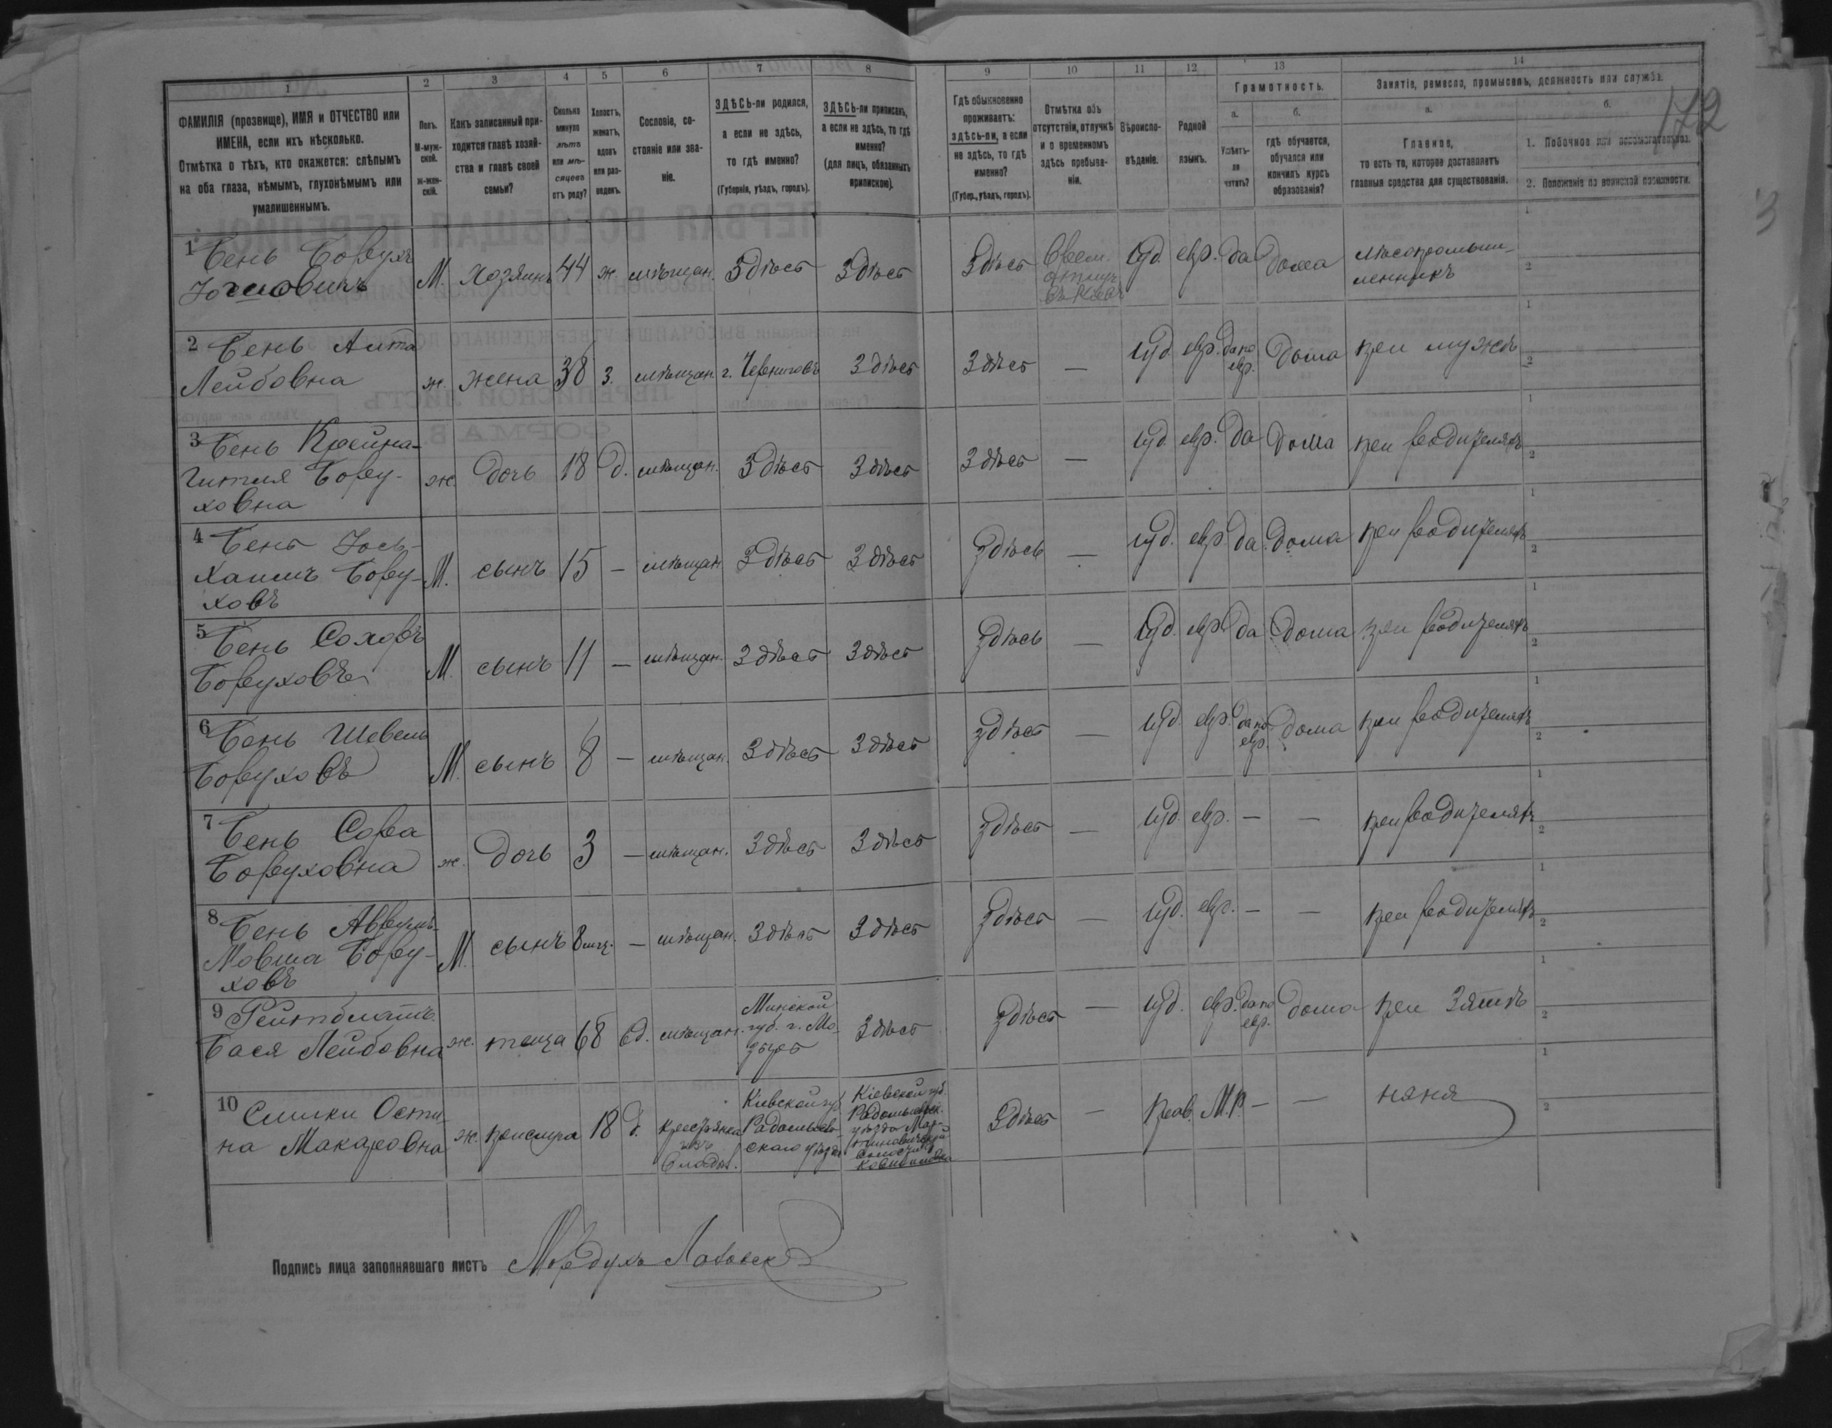 1 2 3 4 5 6 7 8 9 10 11 12 13 14
172
ФАМИЛІЯ (прозвище), ИМЯ и ОТЧЕСТВО или
ИМЕНА, если ихъ нѣсколько.
Отмѣтка о тѣхъ, кто окажется: слѣпымъ
на оба глаза, нѣмымъ, глухонѣмымъ или
умалишеннымъ.
Полъ.
М-муж-
ской.
ж-жен-
скій.
Какъ записанный при-
ходится главѣ хозяй-
ства и главѣ своей
семьи?
Сколько
минуло
лѣтъ
или мѣ-
сяцевъ
отъ роду?
Холостъ,
женатъ,
вдовъ
или раз-
веденъ.
Сословіе, со-
стояніе или зва-
ніе.
ЗДѢСЬ-ли родился,
а если не здѣсь,
то гдѣ именно?
(Губернія, уѣздъ, городъ).
ЗДѢСЬ-ли приписанъ,
а если не здѣсь, то гдѣ
именно?
(для лицъ, обязанныхъ
припискою).
Гдѣ обыкновенно
проживаетъ:
здѣсь-ли, а если
не здѣсь, то гдѣ
именно?
(Губер., уѣздъ, городъ).
Отмѣтка объ
отсутствіи, отлучкѣ
и о временномъ
здѣсь пребыва-
ніи.
Вѣроиспо-
вѣданіе.
Родной
языкъ.
Грамотность.
а.
Умѣетъ-
ли
читать?
б.
гдѣ обучается,
обучался или
кончилъ курсъ
образованія?
Занятіе, ремесло, промыселъ, должность или служба.
а.
Главное,
то есть то, которое доставляетъ
главныя средства для существованія.
б.
1. Побочное или вспомогательное.
2. Положеніе по воинской повинности.
1 Бень Борухъ
М. хозяинъ 44 ж. мѣщан. Здѣсь Здѣсь Здѣсь
іуд. евр. да дома
2 Бень Лейбовна
ж. жена 38 з. мѣщан. г. Черниговъ Здѣсь Здѣсь — іуд. евр. да по евр. дома при мужѣ
3 Бень Крейна-
Гитля Бору-
ховна
ж. дочь 18 д. мѣщан. Здѣсь Здѣсь Здѣсь — іуд. евр. да дома при родителяхъ
4 Бень Іось-
Хаимъ Бору-
ховъ
М. сынъ 15 — мѣщан. Здѣсь Здѣсь Здѣсь — іуд. евр. да дома при родителяхъ
5 Бень
Боруховъ
М. сынъ 11 — мѣщан. Здѣсь Здѣсь Здѣсь — іуд. евр. да дома при родителяхъ
6 Бень Шевель
Боруховъ
М. сынъ 8 — мѣщан. Здѣсь Здѣсь Здѣсь — іуд. евр. да по евр. дома при родителяхъ
7 Бень Сора
Боруховна
ж. дочь 3 — мѣщан. Здѣсь Здѣсь Здѣсь — іуд. евр. — — при родителяхъ
8 Бень Аврумъ-
Мовша Бору-
ховъ
М. сынъ 8 — мѣщан. Здѣсь Здѣсь Здѣсь — іуд. евр. — — при родителяхъ
9 Бася Лейбовна
ж. теща 68 вд. мѣщан. Минской
губ. г. Мо-
зырь
Здѣсь Здѣсь — іуд. евр. да по евр. дома при зятѣ
10 на Макаровна
ж. прислуга 18 д. крестьянка
Кіевской губ.
Радомысль-
скаго уѣзда
Кіевской губ.
Здѣсь — прав. М.р — — няня
Подпись лица заполнявшаго листъ Мордухъ